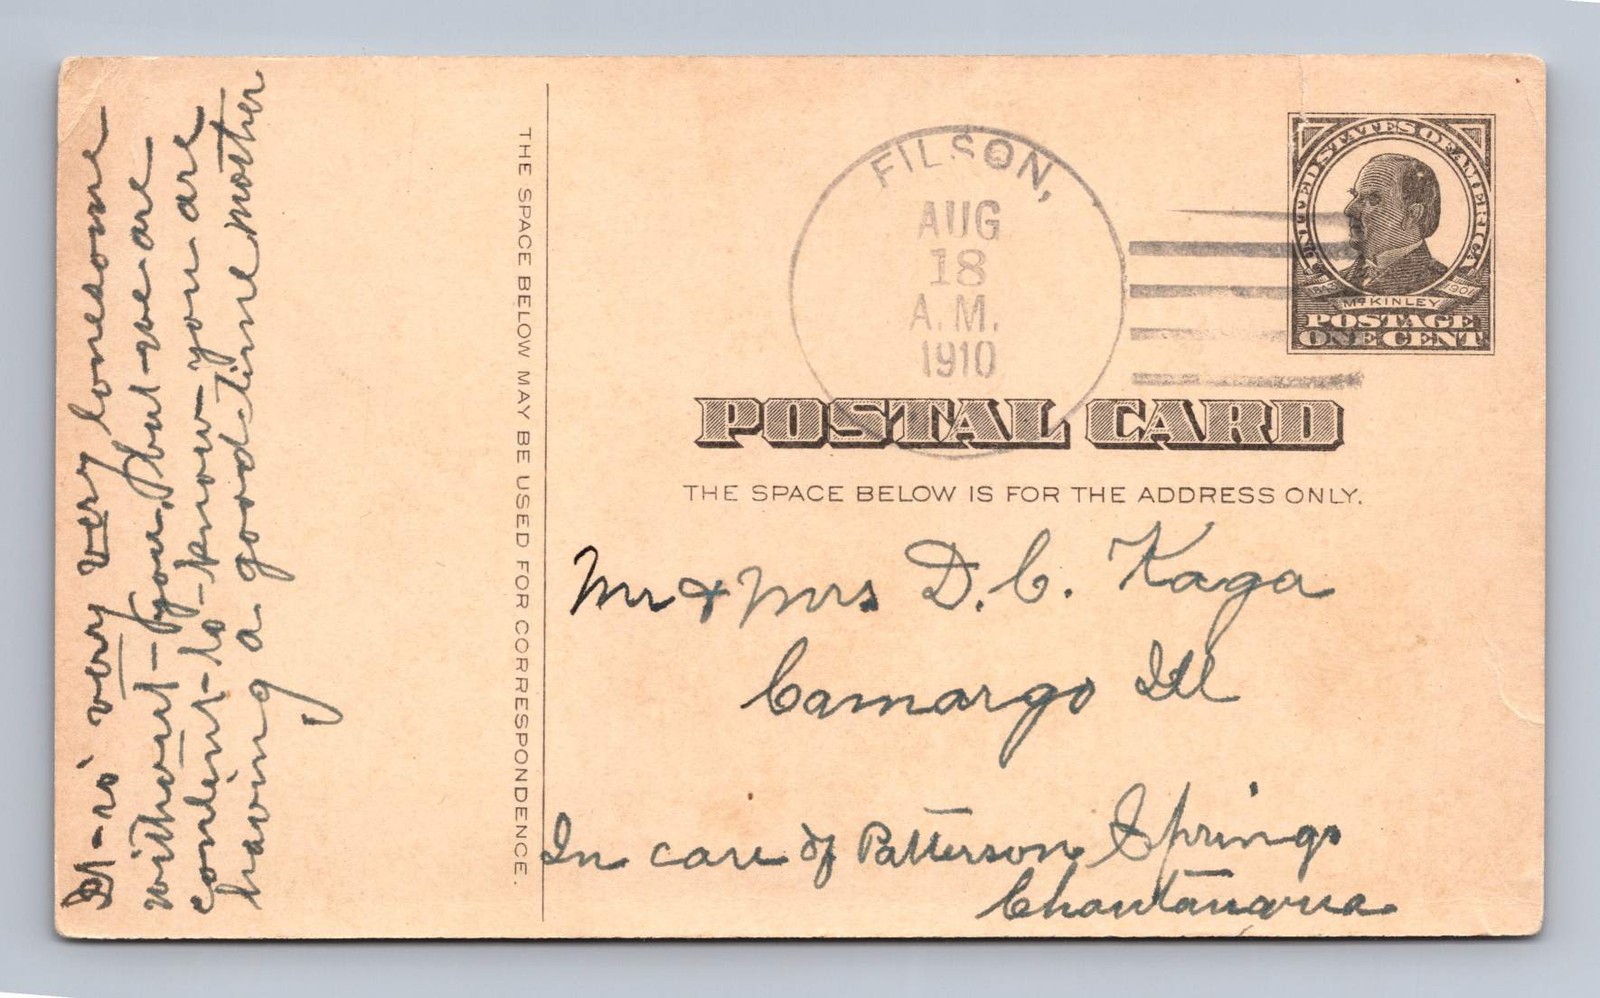 It is very very lonesome
without you, but we are
content to know you are
having a good time mother
THE SPACE BELOW MAY BE USED FOR CORRESPONDENCE.
FILSON,
AUG
18
A.M.
1910
UNITED STATES OF AMERICA
1843 1901
McKINLEY
POSTAGE
ONE CENT
POSTAL CARD
THE SPACE BELOW IS FOR THE ADDRESS ONLY.
Mr & Mrs D. C. Kaga
Camargo Ill
In care of Patterson Springs
Chautauqua